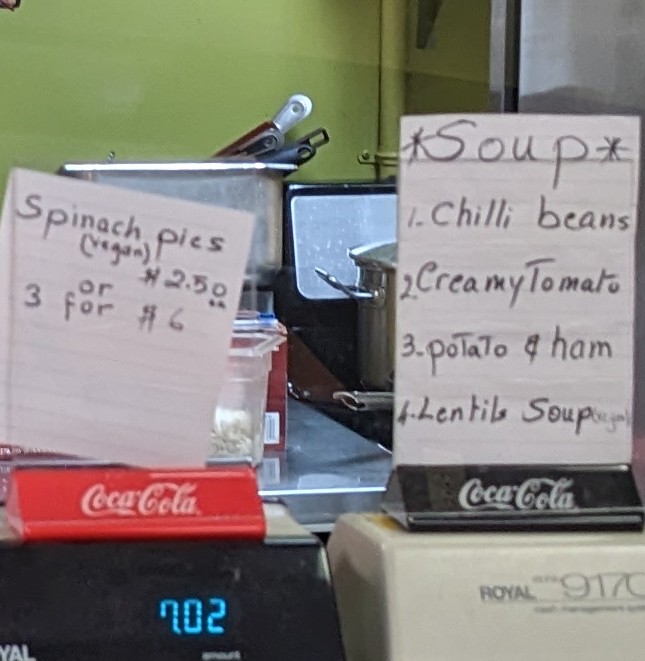 Spinach pies
(vegan) $2.50
or
3 for $6
*Soup*
1. Chilli beans
2 Creamy Tomato
3. potato & ham
4. Lentils Soup (vegan)
Coca-Cola
Coca-Cola
7.02
amount
YAL
ROYAL 9170
cash management